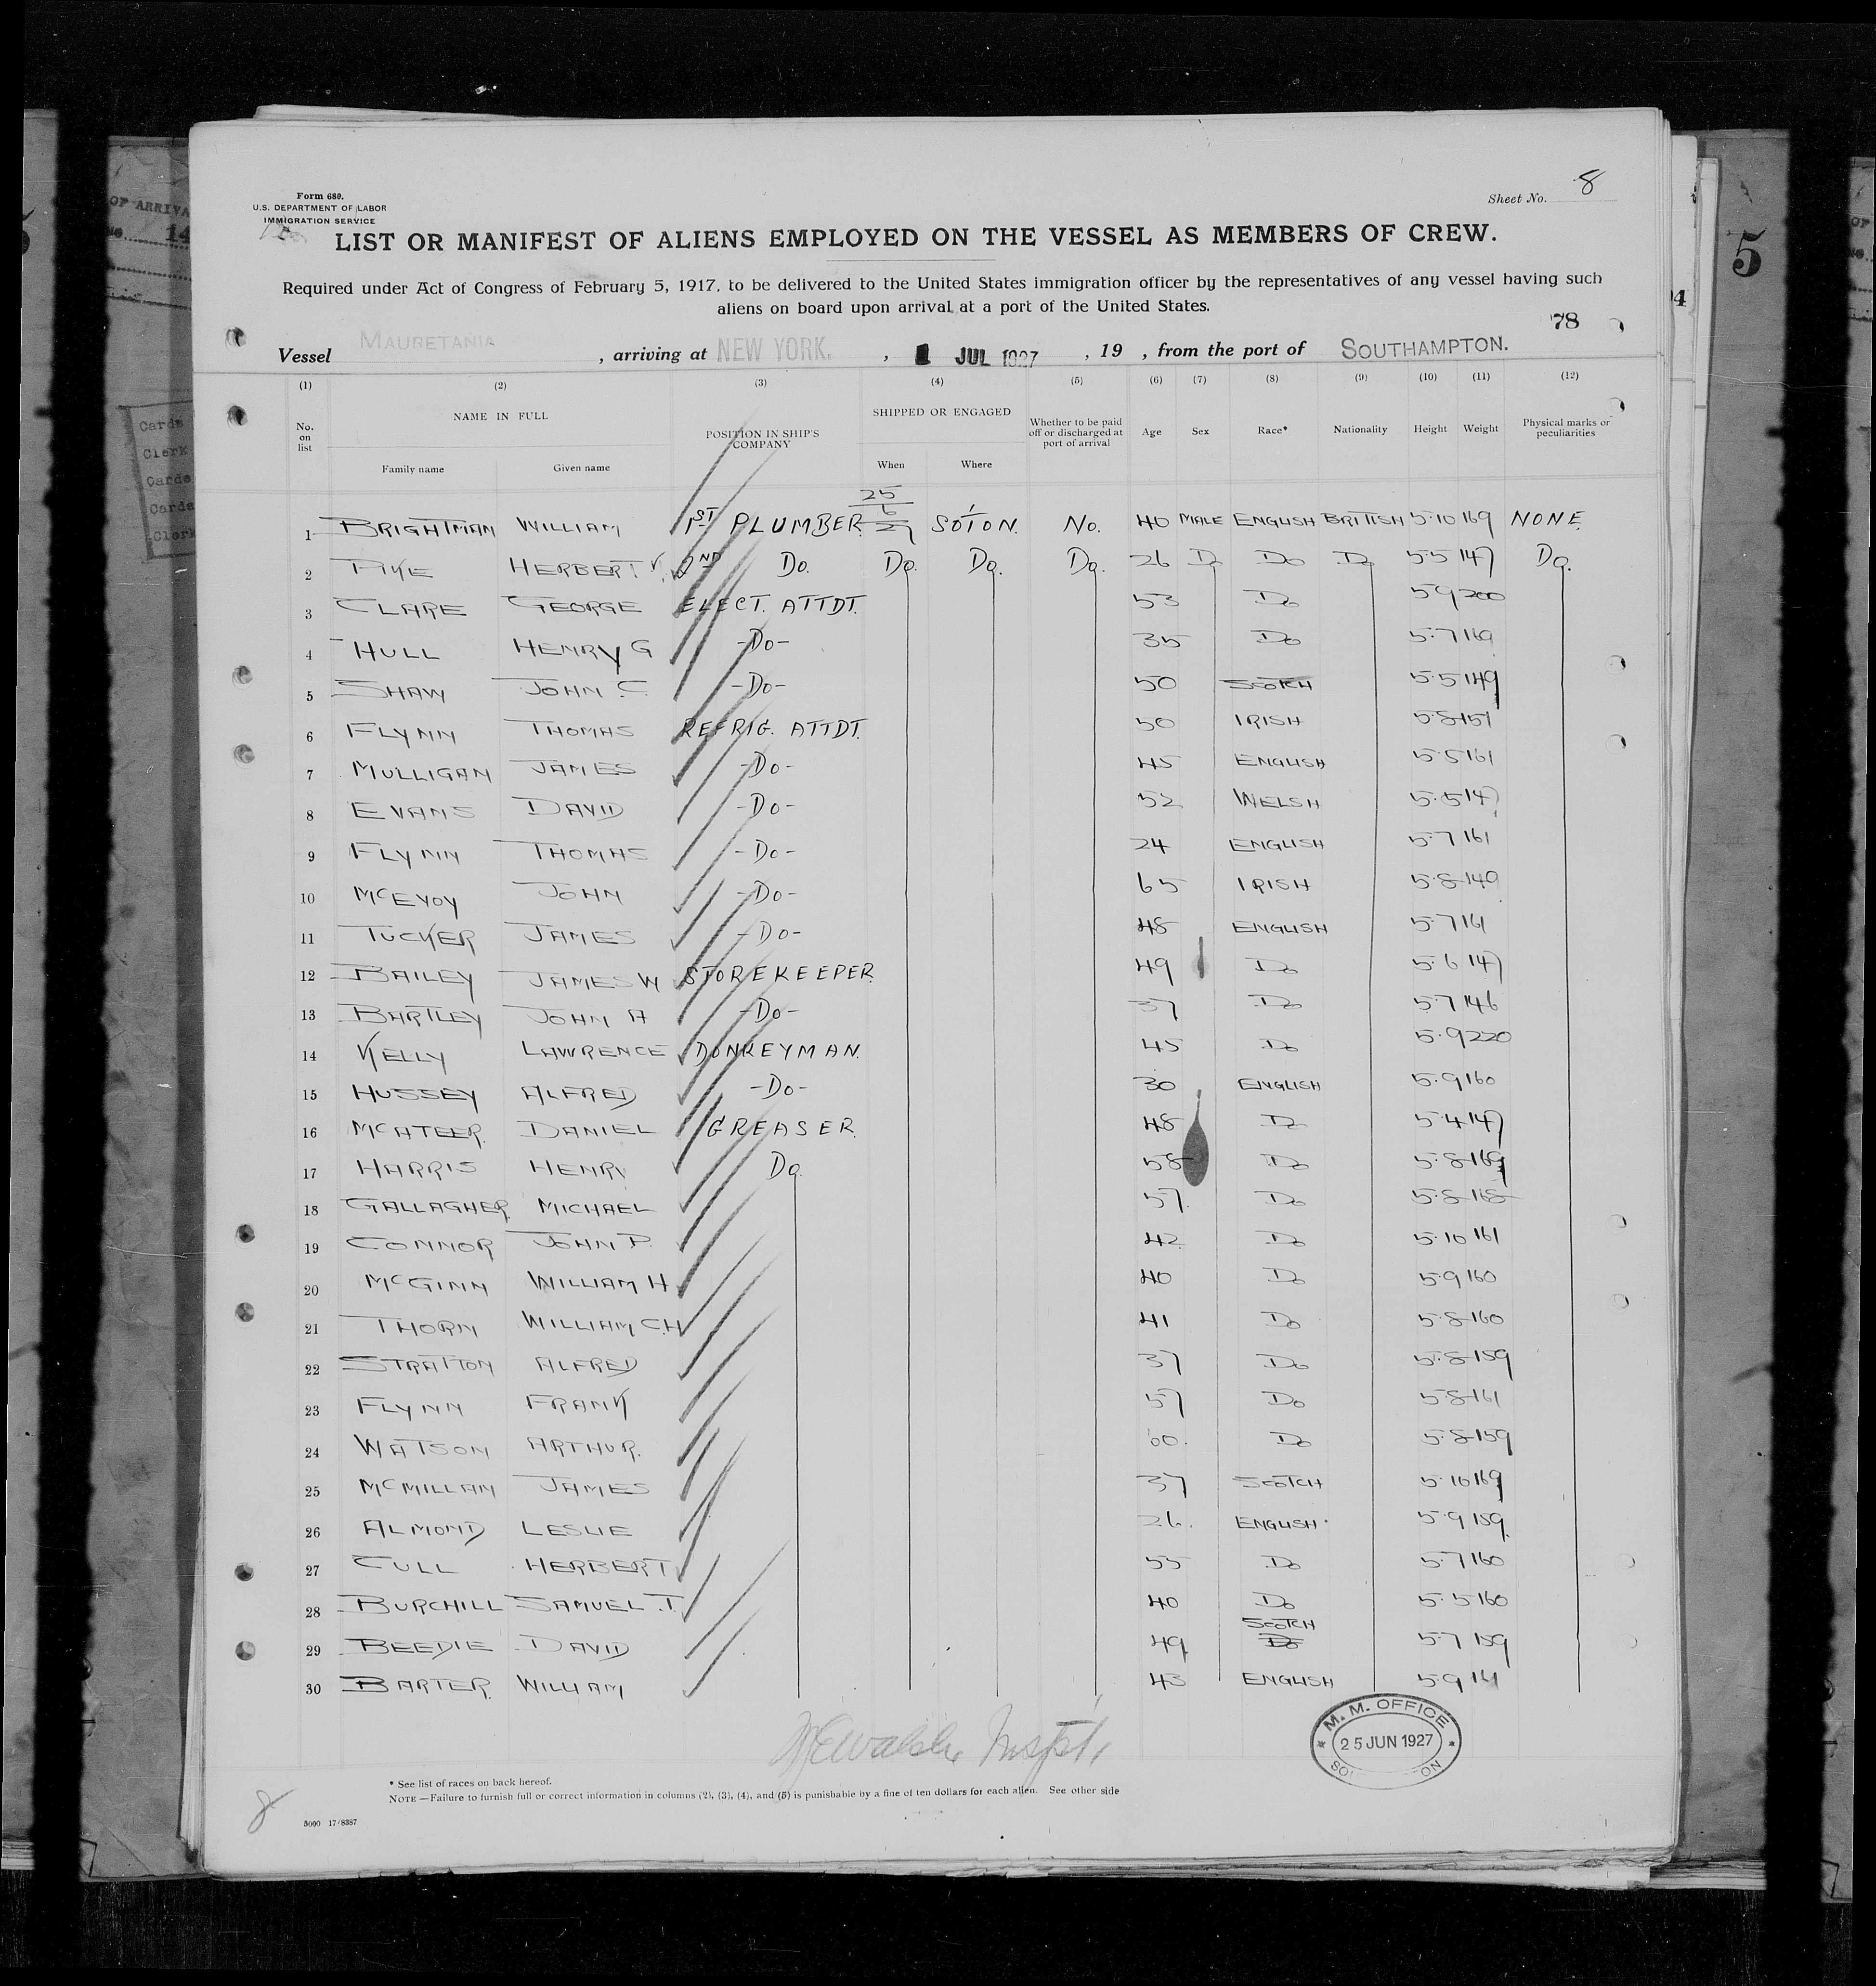 Form 689.
U.S. DEPARTMENT OF LABOR
IMMIGRATION SERVICE
Sheet No. 8
LIST OR MANIFEST OF ALIENS EMPLOYED ON THE VESSEL AS MEMBERS OF CREW.
Required under Act of Congress of February 5, 1917, to be delivered to the United States immigration officer by the representatives of any vessel having such
aliens on board upon arrival at a port of the United States.
78
Vessel MAURETANIA , arriving at NEW YORK. , 1 JUL 1927 , 19 , from the port of SOUTHAMPTON.
(1) (2) (3) (4) (5) (6) (7) (8) (9) (10) (11) (12)
No. on list NAME IN FULL Family name Given name POSITION IN SHIP'S COMPANY SHIPPED OR ENGAGED When Where Whether to be paid off or discharged at port of arrival Age Sex Race* Nationality Height Weight Physical marks or peculiarities
1 BRIGHTMAN WILLIAM 1ST PLUMBER 25/6/27 SO'TON. No. 40 MALE ENGLISH BRITISH 5·10 169 NONE.
2 PIKE HERBERT V. 2ND Do. Do. Do. Do. 26 Do Do Do 5·5 147 Do.
3 CLARE GEORGE ELECT. ATTDT. 53 Do 5·9 200
4 HULL HENRY G -Do- 35 Do 5·7 169
5 SHAW JOHN C. -Do- 50 SCOTCH 5·5 149
6 FLYNN THOMAS REFRIG. ATTDT. 50 IRISH 5·8 151
7 MULLIGAN JAMES -Do- 45 ENGLISH 5·5 161
8 EVANS DAVID -Do- 52 WELSH 5·5 147
9 FLYNN THOMAS -Do- 24 ENGLISH 5·7 161
10 McEVOY JOHN -Do- 65 IRISH 5·8 149
11 TUCKER JAMES -Do- 48 ENGLISH 5·7 161
12 BAILEY JAMES W STOREKEEPER. 49 Do 5·6 147
13 BARTLEY JOHN A -Do- 37 Do 5·7 146
14 KELLY LAWRENCE DONKEYMAN. 45 Do 5·9 220
15 HUSSEY ALFRED -Do- 30 ENGLISH 5·9 160
16 McATEER. DANIEL GREASER. 48 Do 5·4 147
17 HARRIS HENRY Do. 58 Do 5·8 169
18 GALLAGHER. MICHAEL 57. Do 5·8 168
19 CONNOR JOHN P. 42. Do 5·10 161
20 McGINN WILLIAM H 40 Do 5·9 160
21 THORN WILLIAM C.H 41 Do 5·8 160
22 STRATTON ALFRED 37 Do 5·8 159
23 FLYNN FRANK 57 Do 5·8 161
24 WATSON ARTHUR. 60. Do 5·8 159
25 McMILLAN JAMES 37 SCOTCH 5·10 169
26 ALMOND LESLIE 26. ENGLISH 5·9 159.
27 CULL HERBERT 55 Do 5·7 160
28 BURCHILL SAMUEL J. 40 Do 5·5 160
29 BEEDIE DAVID 49 SCOTCH Do 5·7 159
30 BARTER. WILLIAM 43 ENGLISH 5·9 161
M. M. OFFICE
25 JUN 1927
* See list of races on back hereof.
NOTE—Failure to furnish full or correct information in columns (2), (3), (4), and (5) is punishable by a fine of ten dollars for each alien. See other side
8
5000 17-8387
5